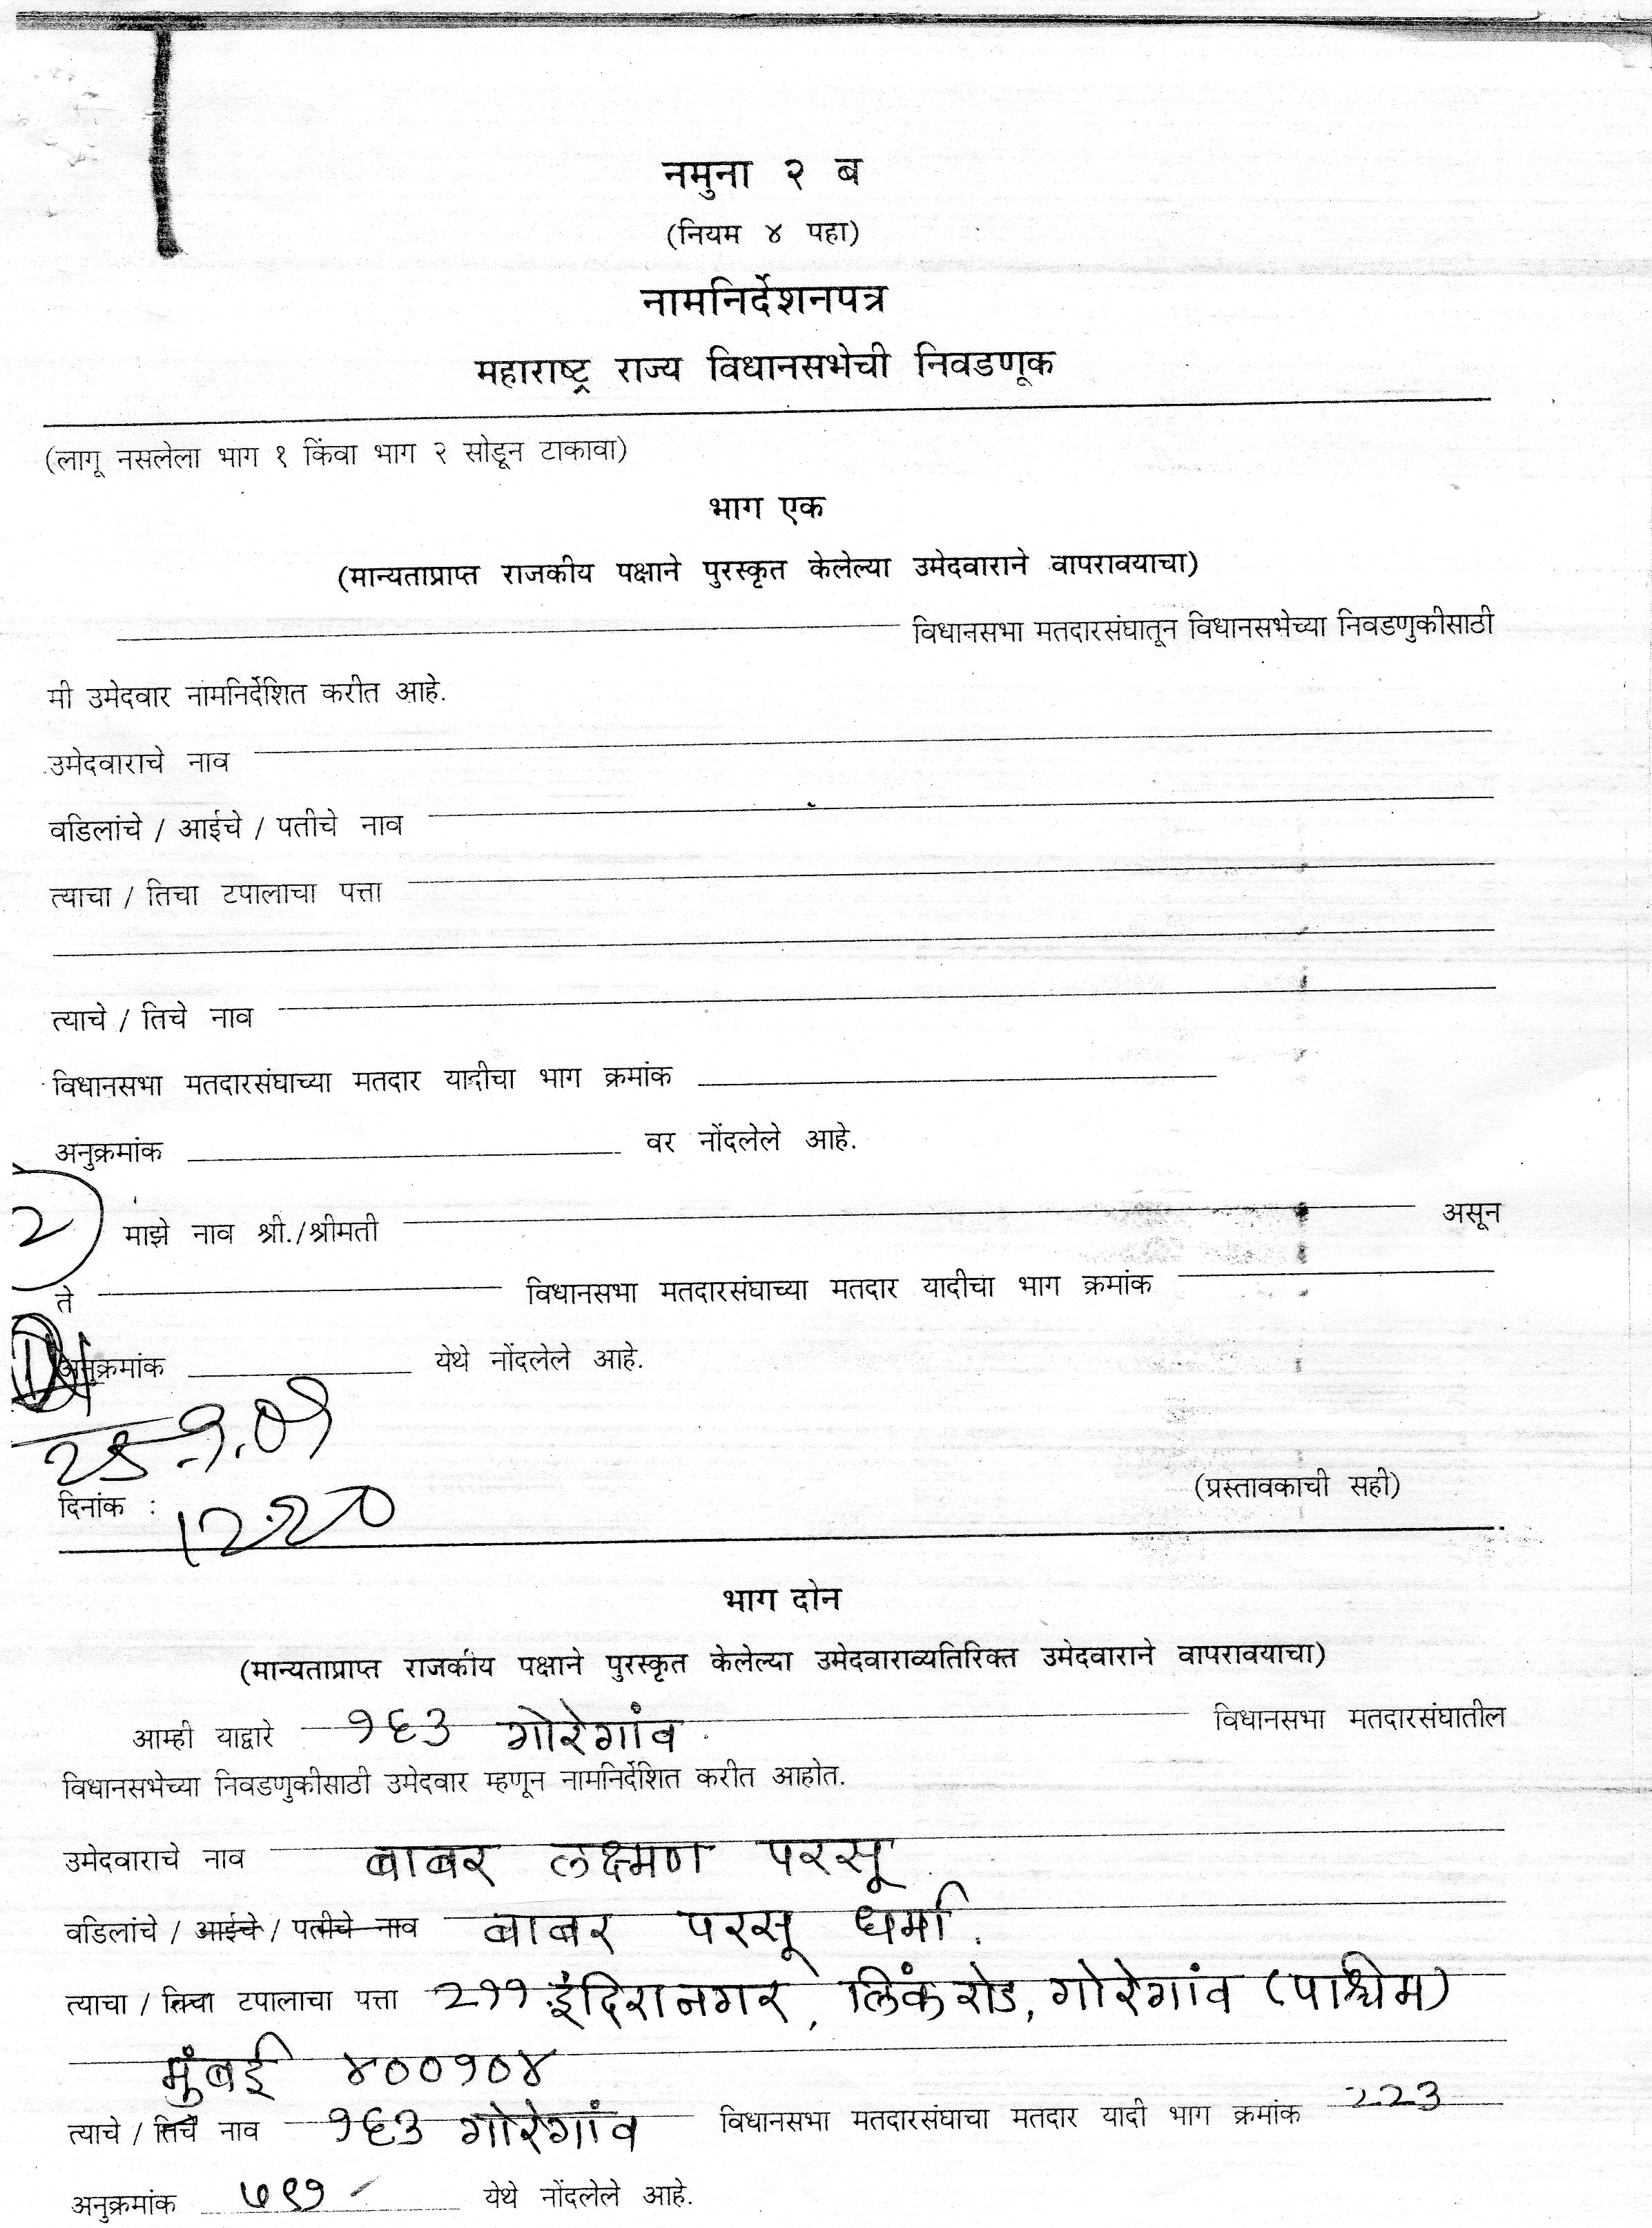 नमुना २ ब
(नियम ४ पहा)
नामनिर्देशनपत्र
महाराष्ट्र राज्य विधानसभेची निवडणूक
(लागू नसलेला भाग १ किंवा भाग २ सोडून टाकावा)
भाग एक
(मान्यताप्राप्त राजकीय पक्षाने पुरस्कृत केलेल्या उमेदवाराने वापरावयाचा)
विधानसभा मतदारसंघातून विधानसभेच्या निवडणुकीसाठी
मी उमेदवार नामनिर्देशित करीत आहे.
उमेदवाराचे नाव
वडिलांचे / आईचे / पतीचे नाव
त्याचा / तिचा टपालाचा पत्ता
त्याचे / तिचे नाव
विधानसभा मतदारसंघाच्या मतदार यादीचा भाग क्रमांक
अनुक्रमांक वर नोंदलेले आहे.
2) माझे नाव श्री./श्रीमती असून
ते विधानसभा मतदारसंघाच्या मतदार यादीचा भाग क्रमांक
अनुक्रमांक येथे नोंदलेले आहे.
25.9.09
(प्रस्तावकाची सही)
दिनांक : 12.20
भाग दोन
(मान्यताप्राप्त राजकीय पक्षाने पुरस्कृत केलेल्या उमेदवाराव्यतिरिक्त उमेदवाराने वापरावयाचा)
आम्ही याद्वारे १६३ गोरेगांव विधानसभा मतदारसंघातील
विधानसभेच्या निवडणुकीसाठी उमेदवार म्हणून नामनिर्देशित करीत आहोत.
उमेदवाराचे नाव बाबर लक्ष्मण परसू
वडिलांचे / आईचे / पतीचे नाव बाबर परसू धर्मा.
त्याचा / तिचा टपालाचा पत्ता २११ इंदिरानगर, लिंकरोड, गोरेगांव (पश्चिम)
मुंबई ४००१०४
त्याचे / तिचे नाव १६३ गोरेगांव विधानसभा मतदारसंघाचा मतदार यादी भाग क्रमांक २२३
अनुक्रमांक ७९१ येथे नोंदलेले आहे.